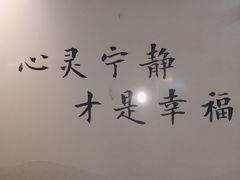 心灵宁静
才是幸福